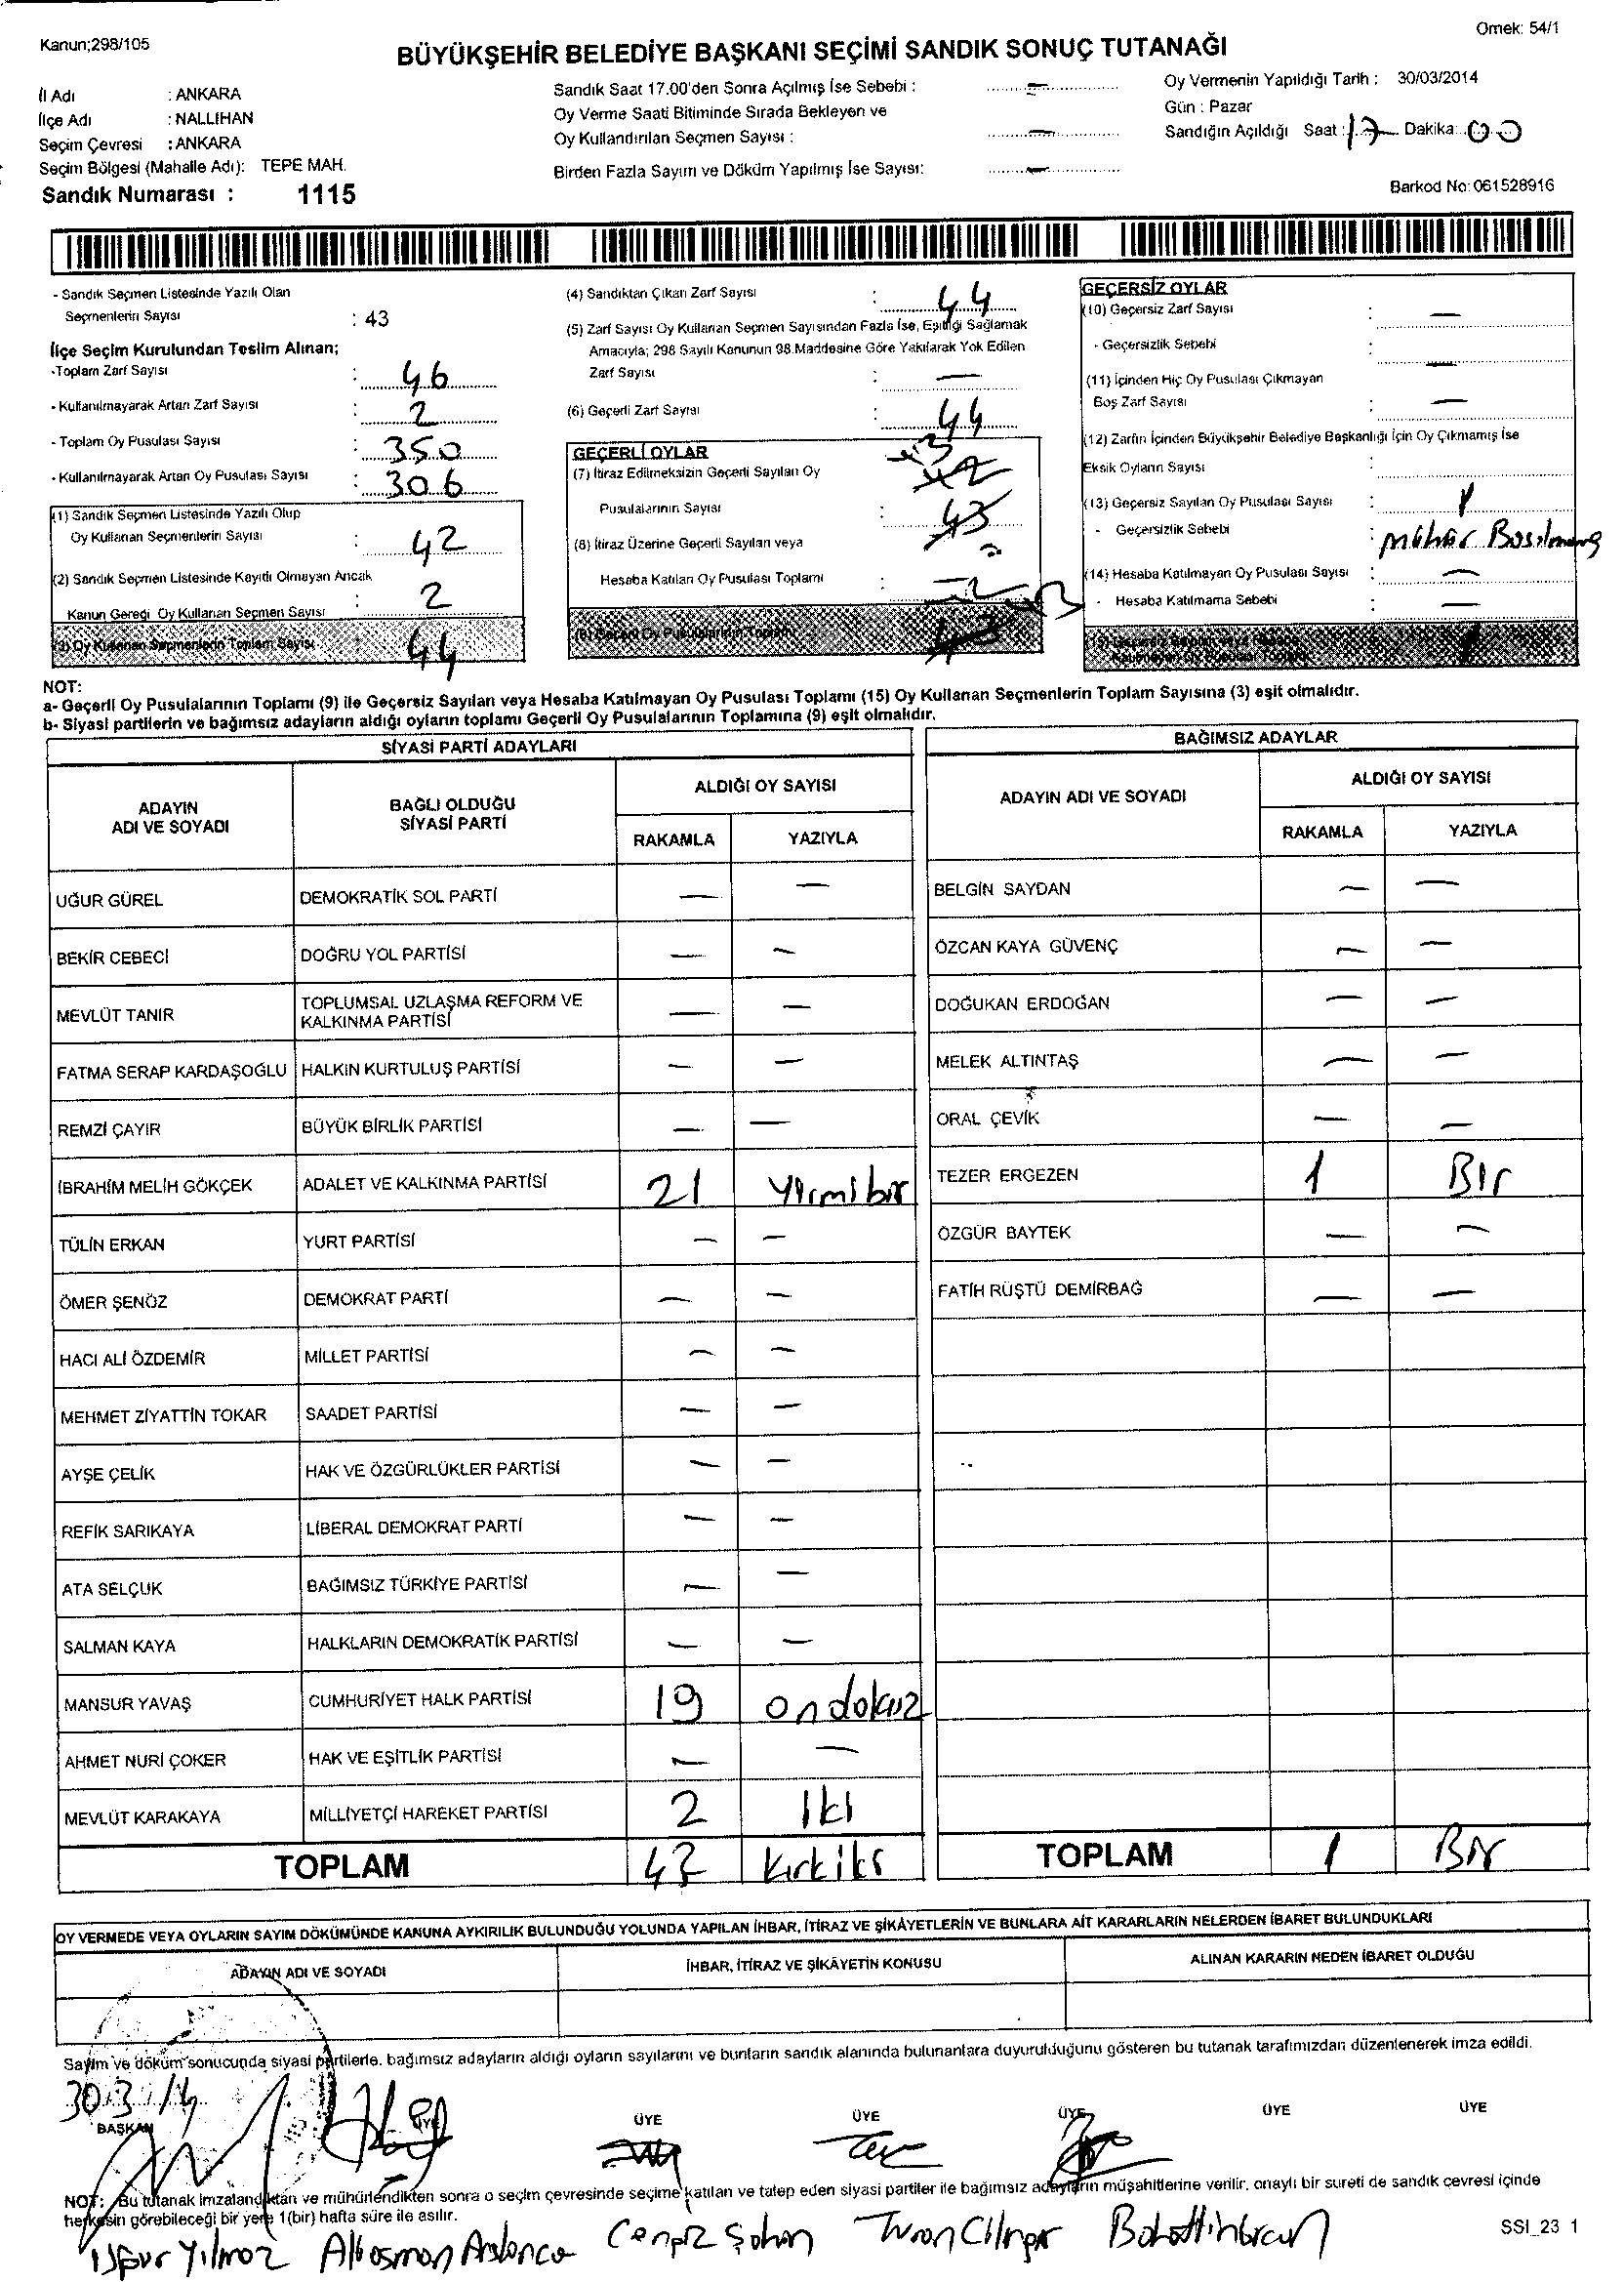 Kanun;298/105
Örnek: 54/1
BÜYÜKŞEHİR BELEDİYE BAŞKANI SEÇİMİ SANDIK SONUÇ TUTANAĞI
İl Adı : ANKARA
İlçe Adı : NALLIHAN
Seçim Çevresi : ANKARA
Seçim Bölgesi (Mahalle Adı): TEPE MAH.
Sandık Numarası : 1115
Sandık Saat 17.00'den Sonra Açılmış İse Sebebi : –
Oy Verme Saati Bitiminde Sırada Bekleyen ve
Oy Kullandırılan Seçmen Sayısı : –
Birden Fazla Sayım ve Döküm Yapılmış İse Sayısı: –
Oy Vermenin Yapıldığı Tarih : 30/03/2014
Gün : Pazar
Sandığın Açıldığı Saat : 17 Dakika: 00
Barkod No: 061528916
- Sandık Seçmen Listesinde Yazılı Olan
Seçmenlerin Sayısı : 43
İlçe Seçim Kurulundan Teslim Alınan;
-Toplam Zarf Sayısı : 46
- Kullanılmayarak Artan Zarf Sayısı : 2
- Toplam Oy Pusulası Sayısı : 350
- Kullanılmayarak Artan Oy Pusulası Sayısı : 306
(1) Sandık Seçmen Listesinde Yazılı Olup
Oy Kullanan Seçmenlerin Sayısı : 42
(2) Sandık Seçmen Listesinde Kayıtlı Olmayan Ancak
Kanun Gereği Oy Kullanan Seçmen Sayısı : 2
(3) Oy Kullanan Seçmenlerin Toplam Sayısı : 44
(4) Sandıktan Çıkan Zarf Sayısı : 44
(5) Zarf Sayısı Oy Kullanan Seçmen Sayısından Fazla İse, Eşitliği Sağlamak
Amacıyla; 298 Sayılı Kanunun 98.Maddesine Göre Yakılarak Yok Edilen
Zarf Sayısı : –
(6) Geçerli Zarf Sayısı : 44
GEÇERLİ OYLAR
(7) İtiraz Edilmeksizin Geçerli Sayılan Oy
Pusulalarının Sayısı : 43
(8) İtiraz Üzerine Geçerli Sayılan veya
Hesaba Katılan Oy Pusulası Toplamı :
(9) Geçerli Oy Pusulalarının Toplamı 43
GEÇERSİZ OYLAR
(10) Geçersiz Zarf Sayısı : –
- Geçersizlik Sebebi : –
(11) İçinden Hiç Oy Pusulası Çıkmayan
Boş Zarf Sayısı : –
(12) Zarfın İçinden Büyükşehir Belediye Başkanlığı İçin Oy Çıkmamış İse
Eksik Oyların Sayısı :
(13) Geçersiz Sayılan Oy Pusulası Sayısı : 1
- Geçersizlik Sebebi : mühür Basılmamış
(14) Hesaba Katılmayan Oy Pusulası Sayısı : –
- Hesaba Katılmama Sebebi : –
1
NOT:
a- Geçerli Oy Pusulalarının Toplamı (9) ile Geçersiz Sayılan veya Hesaba Katılmayan Oy Pusulası Toplamı (15) Oy Kullanan Seçmenlerin Toplam Sayısına (3) eşit olmalıdır.
b- Siyasi partilerin ve bağımsız adayların aldığı oyların toplamı Geçerli Oy Pusulalarının Toplamına (9) eşit olmalıdır.
SİYASİ PARTİ ADAYLARI
ADAYIN ADI VE SOYADI BAĞLI OLDUĞU SİYASİ PARTİ ALDIĞI OY SAYISI
RAKAMLA YAZIYLA
UĞUR GÜREL DEMOKRATİK SOL PARTİ – –
BEKİR CEBECİ DOĞRU YOL PARTİSİ – –
MEVLÜT TANIR TOPLUMSAL UZLAŞMA REFORM VE KALKINMA PARTİSİ – –
FATMA SERAP KARDAŞOĞLU HALKIN KURTULUŞ PARTİSİ – –
REMZİ ÇAYIR BÜYÜK BİRLİK PARTİSİ – –
İBRAHİM MELİH GÖKÇEK ADALET VE KALKINMA PARTİSİ 21 Yirmibir
TÜLİN ERKAN YURT PARTİSİ – –
ÖMER ŞENÖZ DEMOKRAT PARTİ – –
HACI ALİ ÖZDEMİR MİLLET PARTİSİ – –
MEHMET ZİYATTİN TOKAR SAADET PARTİSİ – –
AYŞE ÇELİK HAK VE ÖZGÜRLÜKLER PARTİSİ – –
REFİK SARIKAYA LİBERAL DEMOKRAT PARTİ – –
ATA SELÇUK BAĞIMSIZ TÜRKİYE PARTİSİ – –
SALMAN KAYA HALKLARIN DEMOKRATİK PARTİSİ – –
MANSUR YAVAŞ CUMHURİYET HALK PARTİSİ 19 ondokuz
AHMET NURİ ÇOKER HAK VE EŞİTLİK PARTİSİ – –
MEVLÜT KARAKAYA MİLLİYETÇİ HAREKET PARTİSİ 2 İki
TOPLAM 42 Kırkiki
BAĞIMSIZ ADAYLAR
ADAYIN ADI VE SOYADI ALDIĞI OY SAYISI
RAKAMLA YAZIYLA
BELGİN SAYDAN – –
ÖZCAN KAYA GÜVENÇ – –
DOĞUKAN ERDOĞAN – –
MELEK ALTINTAŞ – –
ORAL ÇEVİK – –
TEZER ERGEZEN 1 Bir
ÖZGÜR BAYTEK – –
FATİH RÜŞTÜ DEMİRBAĞ – –
TOPLAM 1 Bir
OY VERMEDE VEYA OYLARIN SAYIM DÖKÜMÜNDE KANUNA AYKIRILIK BULUNDUĞU YOLUNDA YAPILAN İHBAR, İTİRAZ VE ŞİKÂYETLERİN VE BUNLARA AİT KARARLARIN NELERDEN İBARET BULUNDUKLARI
ADAYIN ADI VE SOYADI İHBAR, İTİRAZ VE ŞİKÂYETİN KONUSU ALINAN KARARIN NEDEN İBARET OLDUĞU
Sayım ve döküm sonucunda siyasi partilerle, bağımsız adayların aldığı oyların sayılarını ve bunların sandık alanında bulunanlara duyurulduğunu gösteren bu tutanak tarafımızdan düzenlenerek imza edildi.
30.3.14
BAŞKAN ÜYE ÜYE ÜYE ÜYE ÜYE ÜYE
NOT: Bu tutanak imzalandıktan ve mühürlendikten sonra o seçim çevresinde seçime katılan ve talep eden siyasi partiler ile bağımsız adayların müşahitlerine verilir, onaylı bir sureti de sandık çevresi içinde
herkesin görebileceği bir yere 1(bir) hafta süre ile asılır.
Yılmaz Aliosman Arslanca Cengiz Şahin Turan Cılngır
SSI_23 1